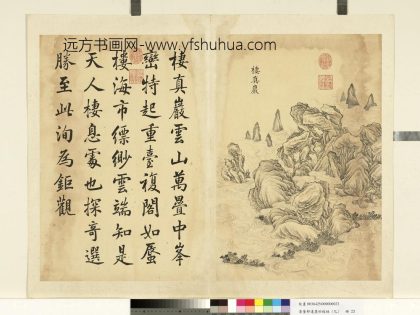 远方书画网-www.yfshuhua.com
棲真巖雲山萬疊中峯
巒特起重臺複閣如蜃
樓海市縹緲雲端知是
天人棲息處也探奇選
勝至此洵為鉅觀
棲真巖